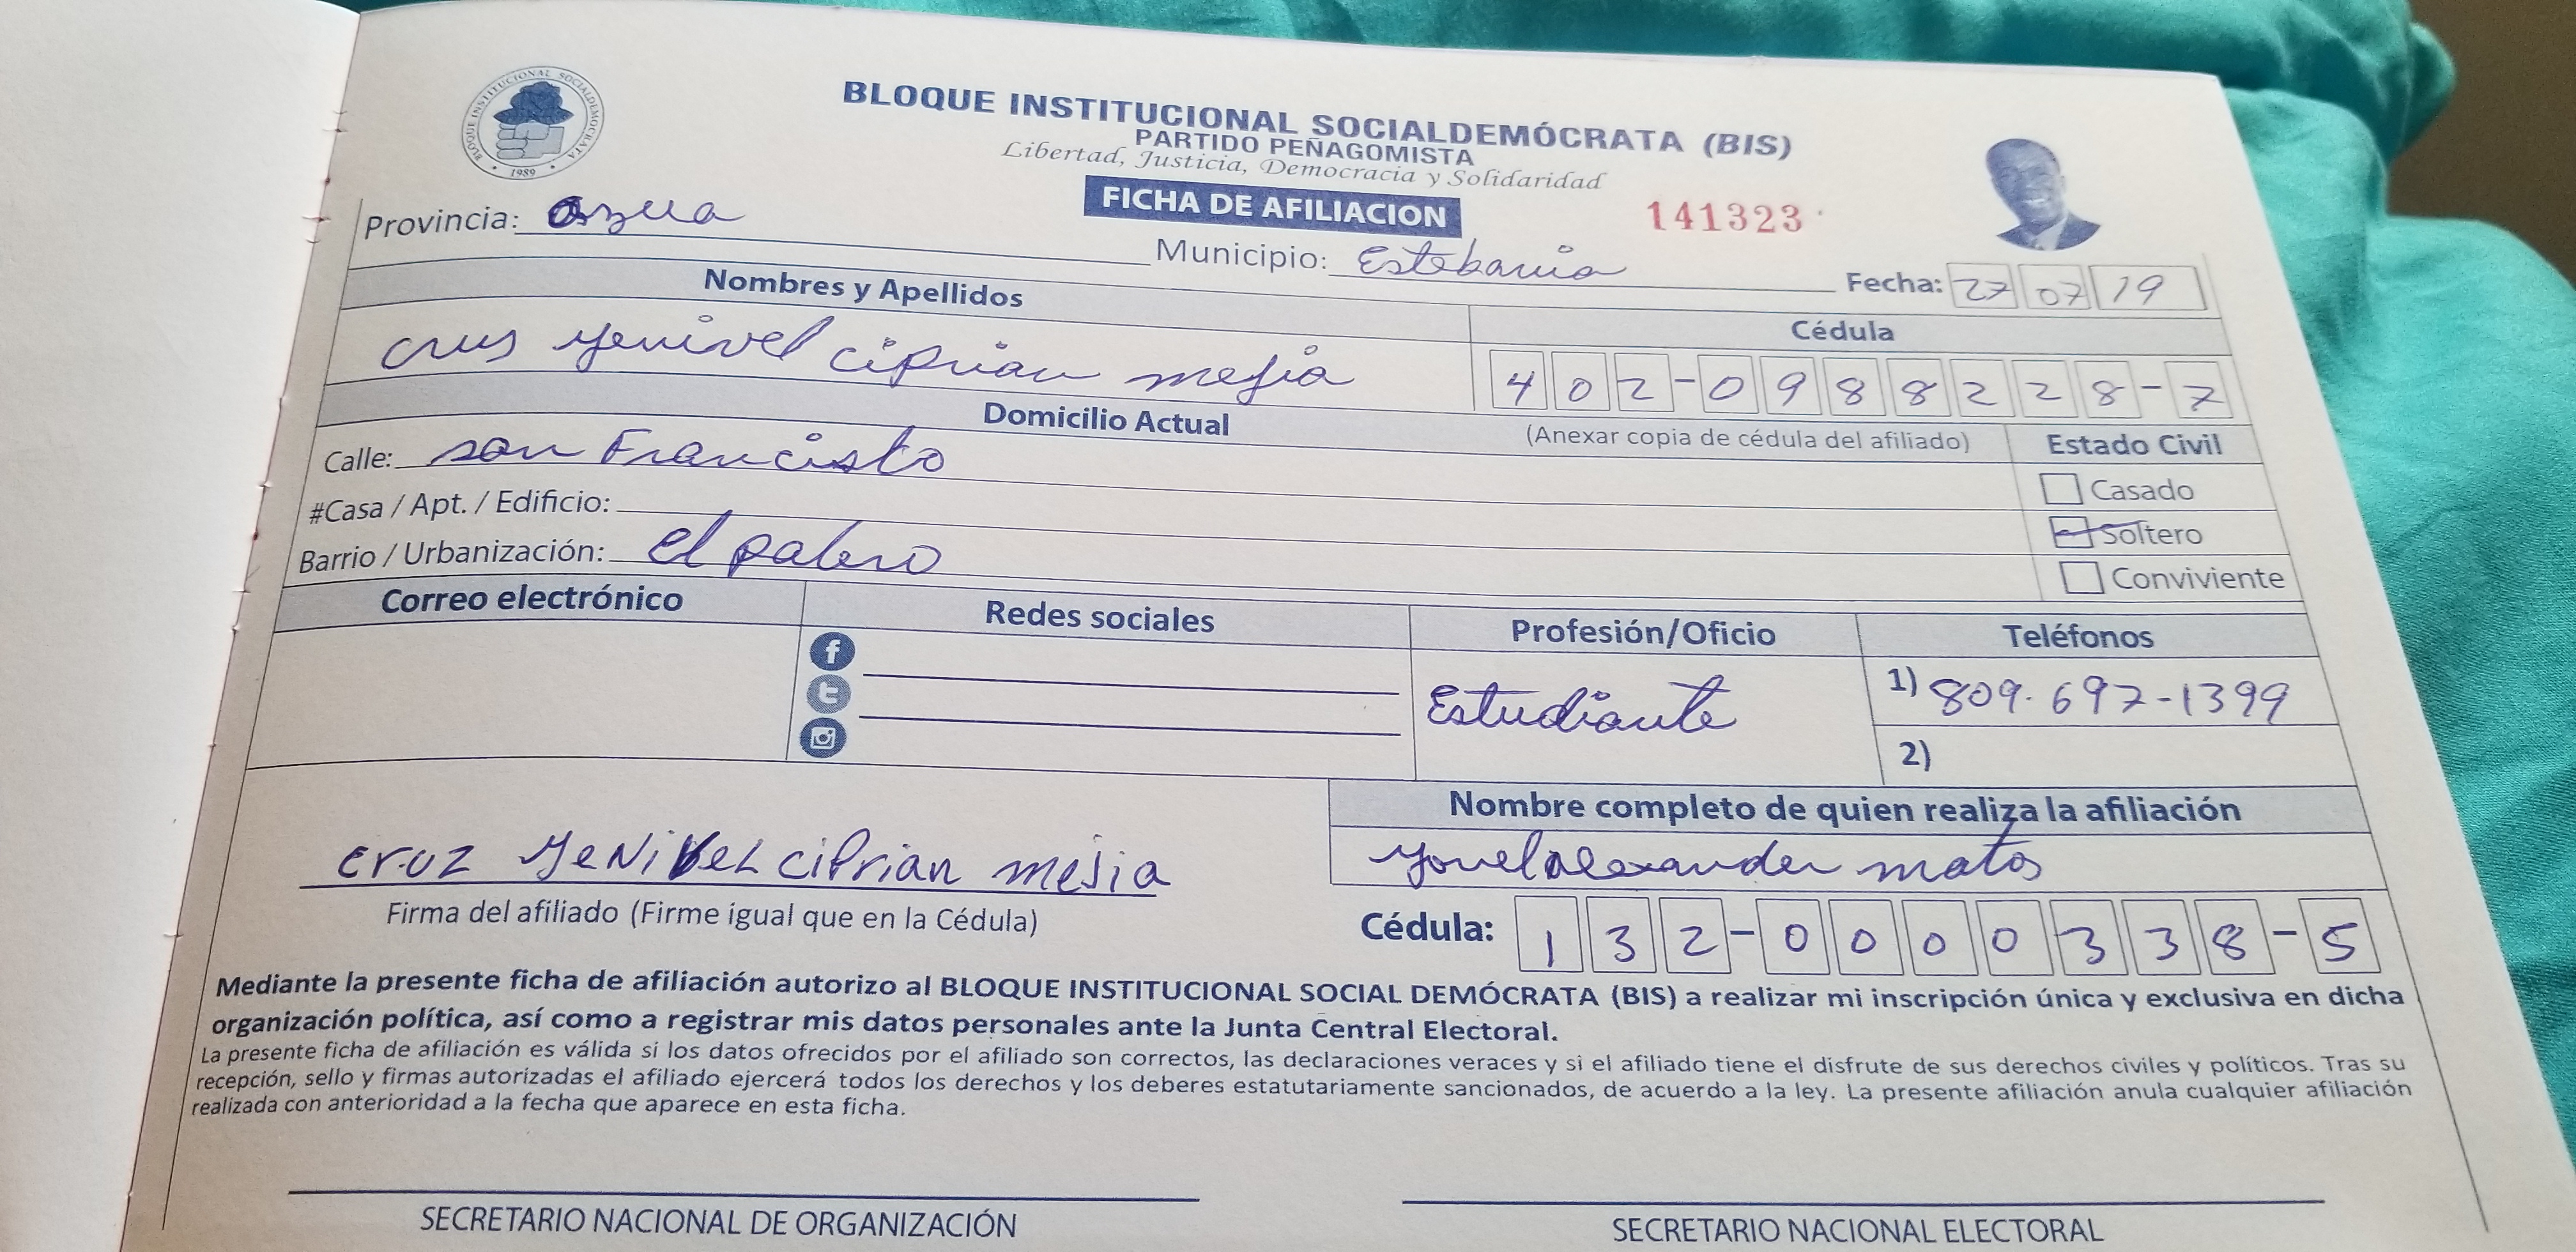 BLOQUE INSTITUCIONAL SOCIALDEMOCRATA
1989
BLOQUE INSTITUCIONAL SOCIALDEMÓCRATA (BIS)
PARTIDO PEÑAGOMISTA
Libertad, Justicia, Democracia y Solidaridad
FICHA DE AFILIACION
141323
Provincia: Azua
Municipio: Estebania
Fecha: 27 07 19
Nombres y Apellidos
crus yenivel ciprian mejia
Cédula
402-0988228-7
Domicilio Actual
(Anexar copia de cédula del afiliado)
Estado Civil
Calle: san Francisko
Casado
#Casa / Apt. / Edificio:
Soltero
Barrio / Urbanización: el palero
Conviviente
Correo electrónico
Redes sociales
Profesión/Oficio
Teléfonos
Estudiante
1) 809-697-1399
2)
Nombre completo de quien realiza la afiliación
alexander matos
cruz yeNiVeL ciPrian mejia
Firma del afiliado (Firme igual que en la Cédula)
Cédula: 132-0000338-5
Mediante la presente ficha de afiliación autorizo al BLOQUE INSTITUCIONAL SOCIAL DEMÓCRATA (BIS) a realizar mi inscripción única y exclusiva en dicha
organización política, así como a registrar mis datos personales ante la Junta Central Electoral.
La presente ficha de afiliación es válida si los datos ofrecidos por el afiliado son correctos, las declaraciones veraces y si el afiliado tiene el disfrute de sus derechos civiles y políticos. Tras su
recepción, sello y firmas autorizadas el afiliado ejercerá todos los derechos y los deberes estatutariamente sancionados, de acuerdo a la ley. La presente afiliación anula cualquier afiliación
realizada con anterioridad a la fecha que aparece en esta ficha.
SECRETARIO NACIONAL DE ORGANIZACIÓN
SECRETARIO NACIONAL ELECTORAL